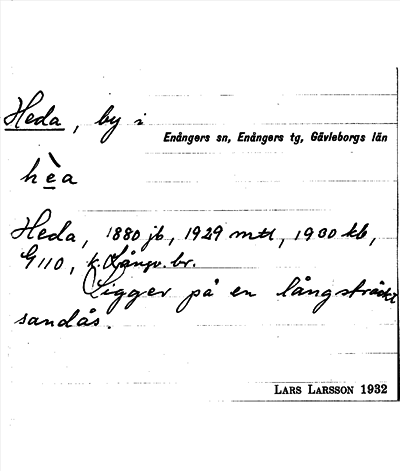 Heda, by i
Enångers sn, Enångers tg, Gävleborgs län
hèa
Heda, 1880 jb, 1929 mtl, 1900 kb,
G110, k. Långv. br.
Ligger på en långsträckt
sandås.
LARS LARSSON 1932